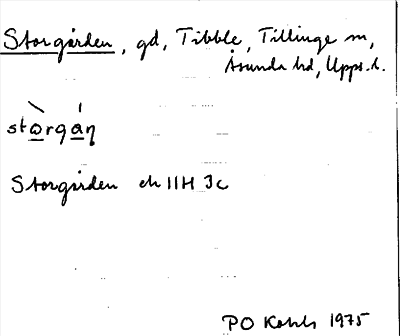 Storgården, gd, Tibble, Tillinge sn,
Åsunda hd, Upps. l.
stòrgán
Storgården ek 11H 3c
PO Kohls 1975